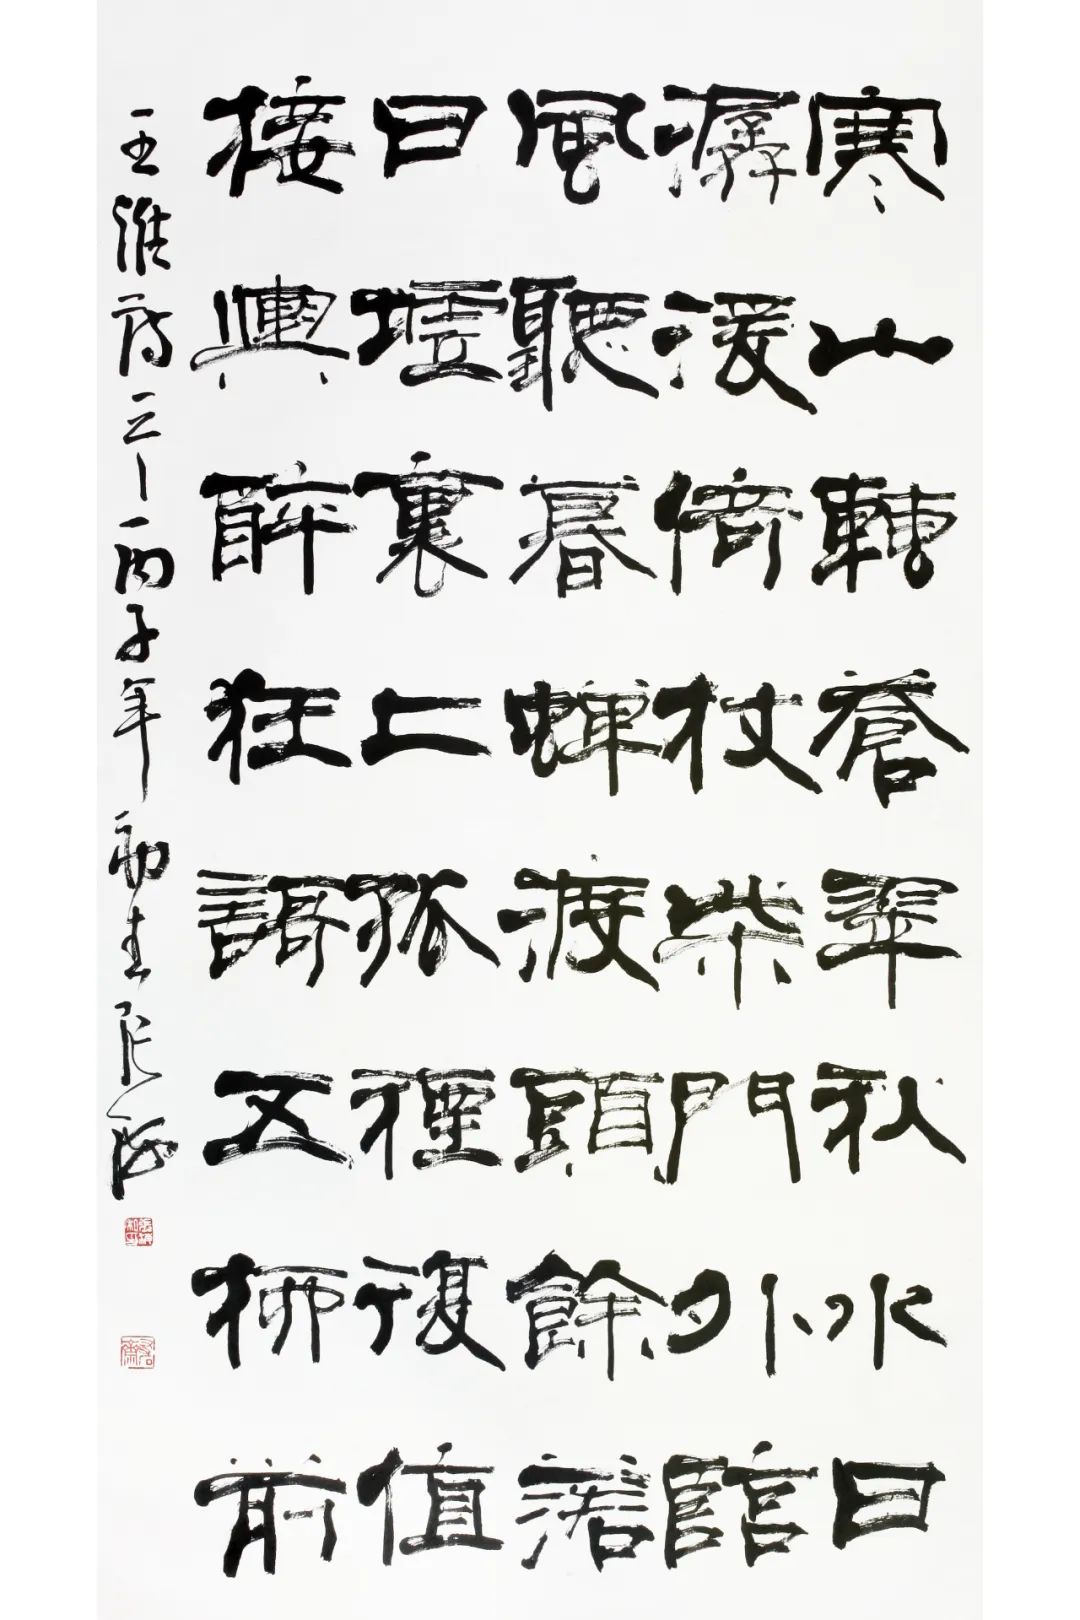 寒山轉蒼翠秋水日
潺湲倚杖柴門外臨
風聽暮蟬渡頭餘落
日墟裏上孤煙復值
接輿醉狂謌五柳前
王維詩 丙子年初春張海